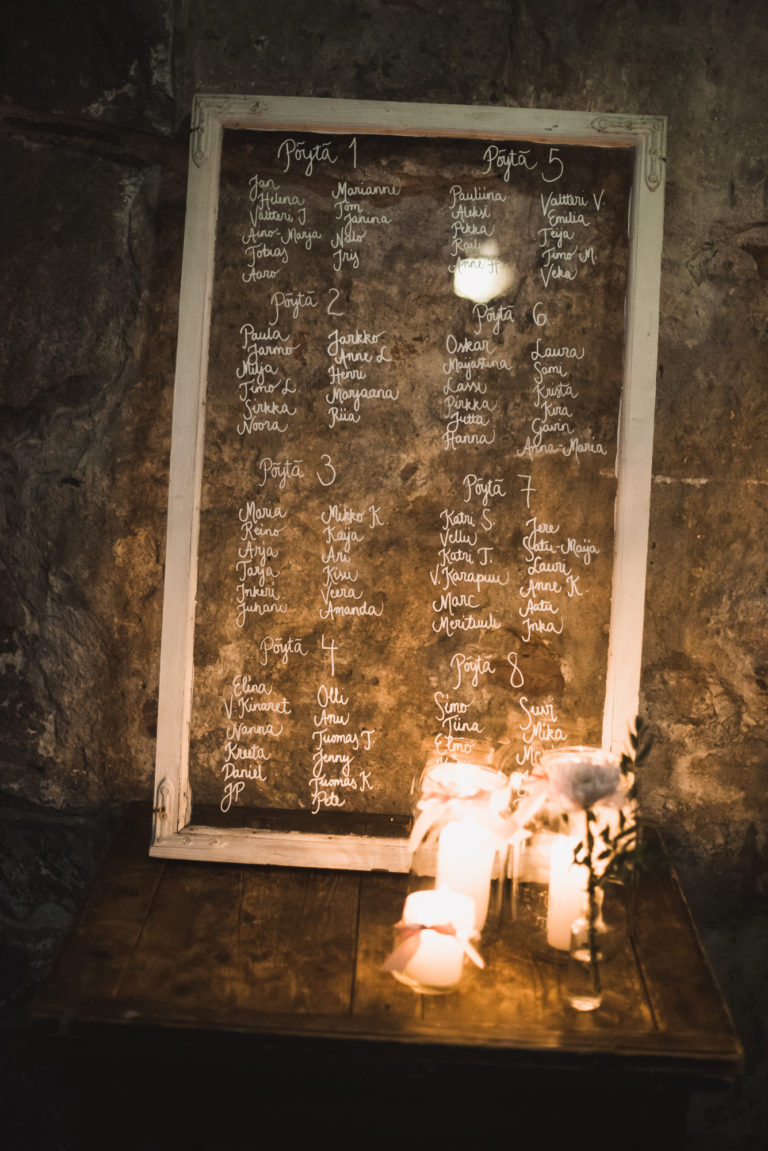 Pöytä 1
Jan
Helena
Valtteri J.
Aino-Marja
Tobias
Aaro
Marianne
Tom
Janina
Niilo
Iris
Pöytä 2
Paula
Jarmo
Milja
Timo L.
Sirkka
Noora
Jarkko
Anne L.
Henri
Marjaana
Riia
Pöytä 3
Maria
Reino
Arja
Tarja
Inkeri
Juhani
Mikko K.
Kaija
Ari
Kisu
Veera
Amanda
Pöytä 4
Elina
V. Kinaret
Nanna
Kreeta
Daniel
JP
Olli
Anu
Tuomas T
Jenny
Tuomas K
Pete
Pöytä 5
Pauliina
Aleksi
Pekka
Raili
Anne H
Valtteri V.
Emilia
Teija
Timo M.
Veka
Pöytä 6
Oskar
Maijastina
Lassi
Pirkka
Jutta
Hanna
Laura
Sami
Krista
Kira
Gavin
Anna-Maria
Pöytä 7
Katri S.
Vellu
Katri T.
V. Karapuu
Marc
Merituuli
Jere
Satu-Maija
Lauri
Anne K.
Aatu
Inka
Pöytä 8
Simo
Tiina
Elmo
Suvi
Mika